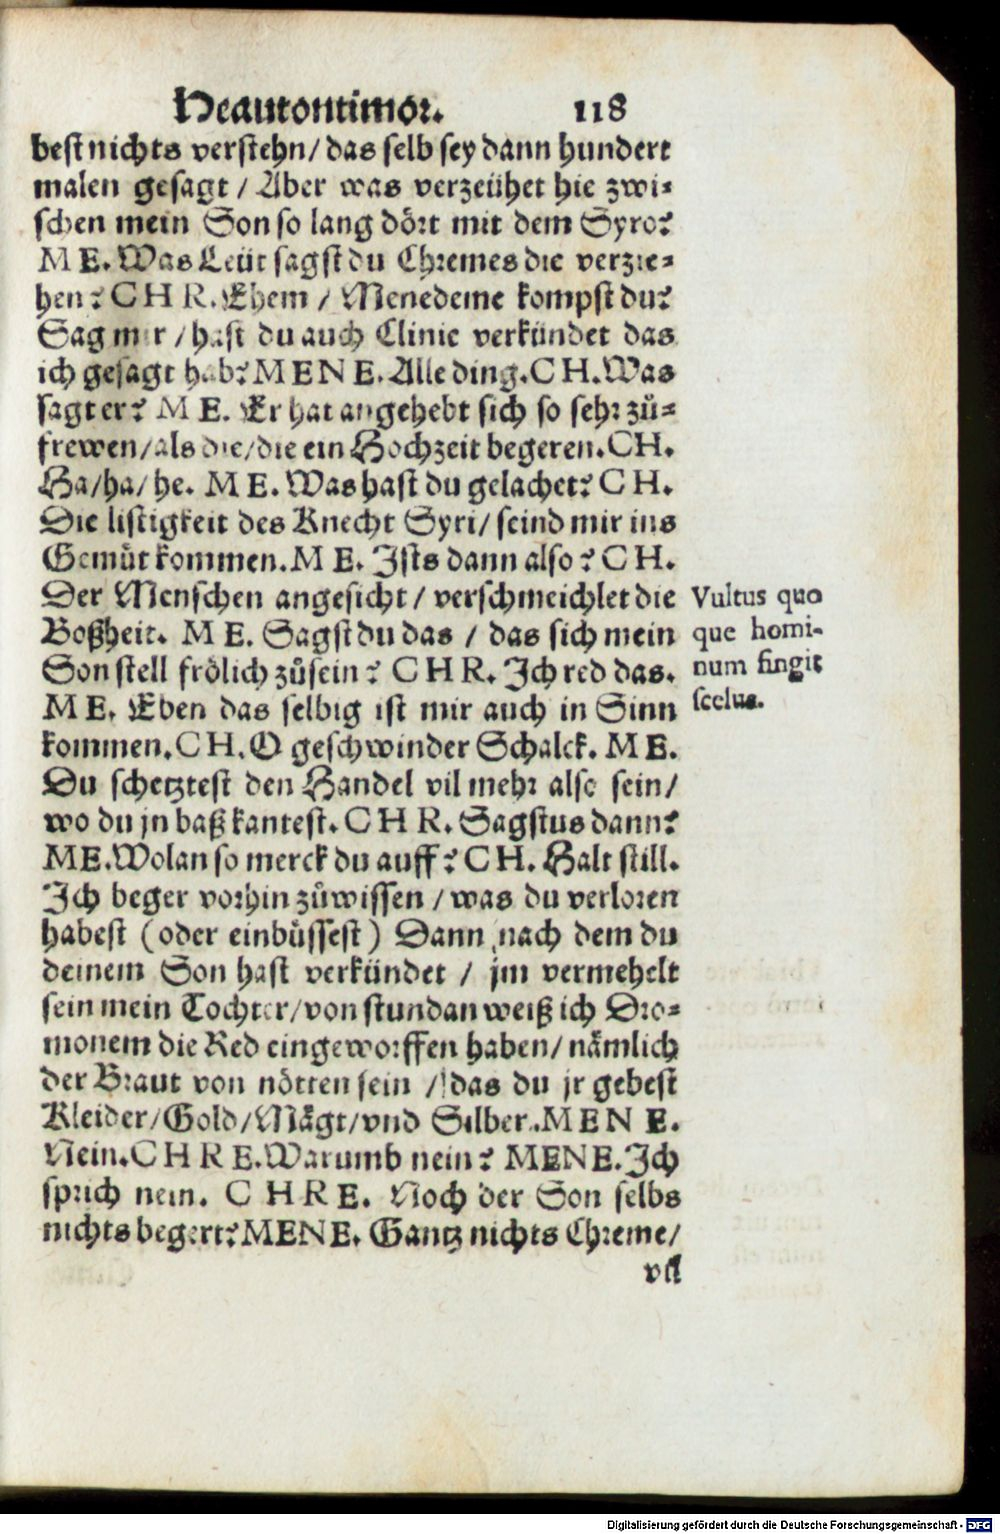 Heautontimor. 118
best nichts verstehn/ das selb sey dann hundert
malen gesagt / Aber was verzeühet hie zwi⸗
schen mein Son so lang dört mit dem Syro?
ME. Was Leüt sagst du Chremes die verzie⸗
hen? CHR. Ehem / Menedeme kompst du?
Sag mir / hast du auch Clinie verkündet das
ich gesagt hab? MENE. Alle ding. CH. Was
sagt er? ME. Er hat angehebt sich so sehr zů⸗
frewen/ als die/ die ein Hochzeit begeren. CH.
Ha/ ha/ he. ME. Was hast du gelachet? CH.
Die listigkeit des Knecht Syri/ seind mir ins
Gemüt kommen. ME. Ists dann also? CH.
Der Menschen angesicht/ verschmeichlet die
Boßheit. ME. Sagst du das / das sich mein
Son stell frölich zůsein? CHR. Ich red das.
ME. Eben das selbig ist mir auch in Sinn
kommen. CH. O geschwinder Schalck. ME.
Du schetztest den Handel vil mehr also sein/
wo du jn baß kantest. CHR. Sagstus dann?
ME. Wolan so merck du auff? CH. Halt still.
Ich beger vorhin zůwissen / was du verloren
habest (oder einbüssest) Dann nach dem du
deinem Son hast verkündet / jm vermehelt
sein mein Tochter/ von stundan weiß ich Dro⸗
monem die Red eingeworffen haben/ nämlich
der Braut von nötten sein / das du jr gebest
Kleider/ Gold/ Mägt/ vnd Silber. MENE.
Nein. CHRE. Warumb nein? MENE. Ich
sprich nein. CHRE. Noch der Son selbs
nichts begert? MENE. Gantz nichts Chreme/
vil
Vultus quo
que homi-
num fingit
scelus.
Digitalisierung gefördert durch die Deutsche Forschungsgemeinschaft - DFG